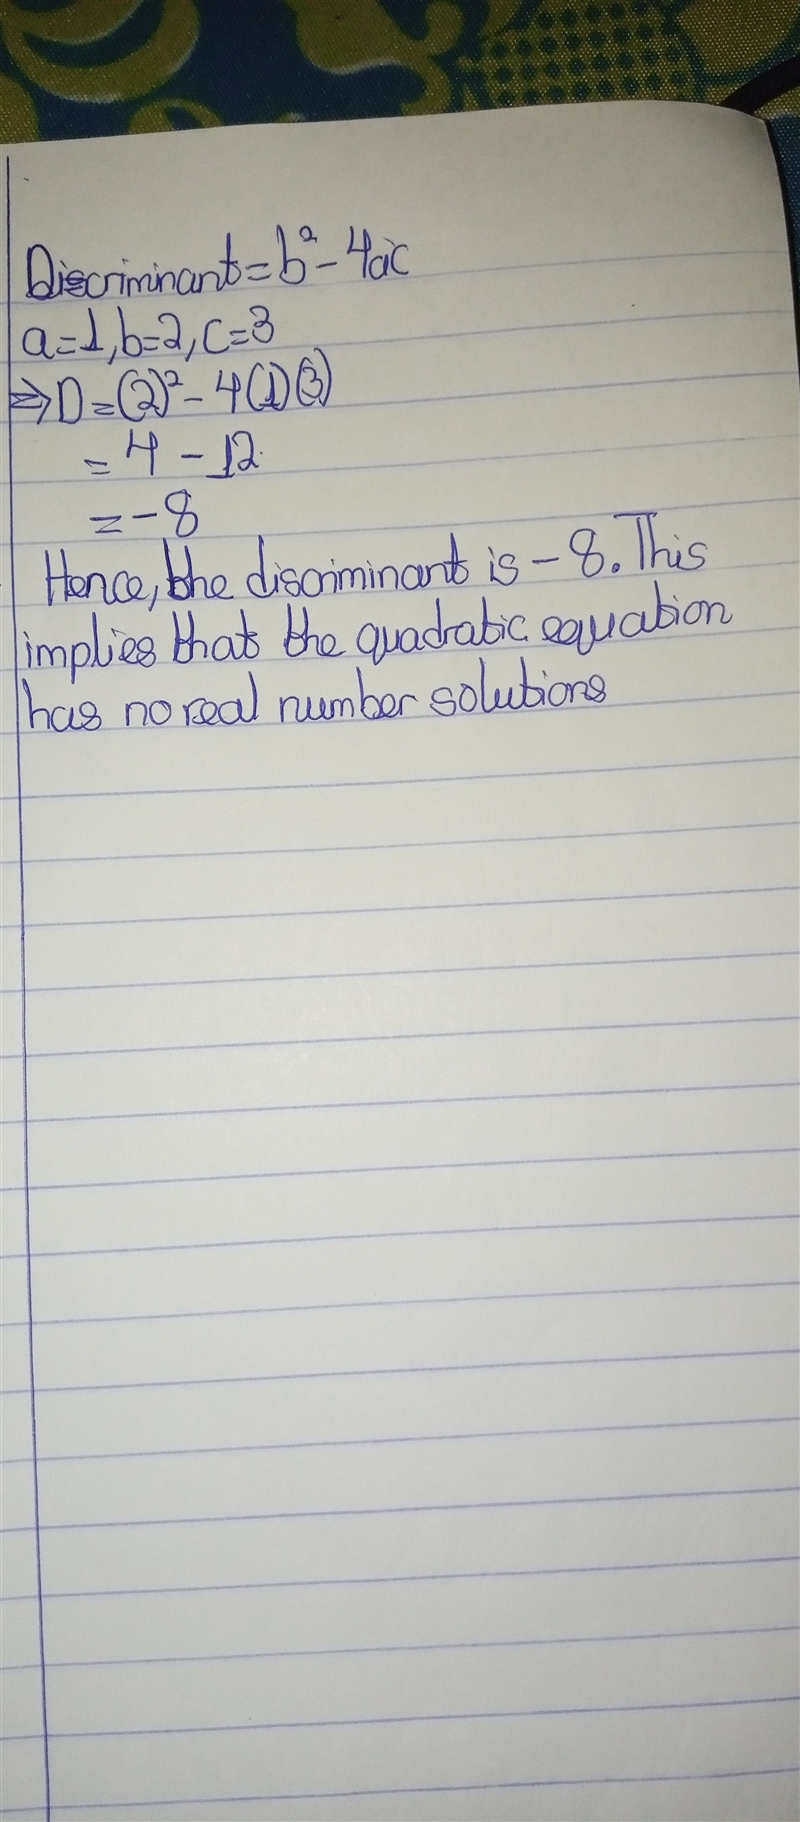 Discriminant = b² - 4ac
a=1, b=2, c=3
⇒ D = (2)² - 4(1)(3)
= 4 - 12
= -8
Hence, the discriminant is -8. This
implies that the quadratic equation
has no real number solutions